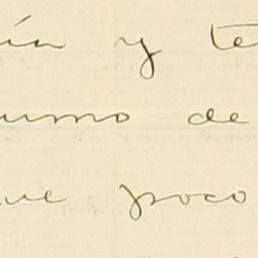 y te
umo de
ue poco